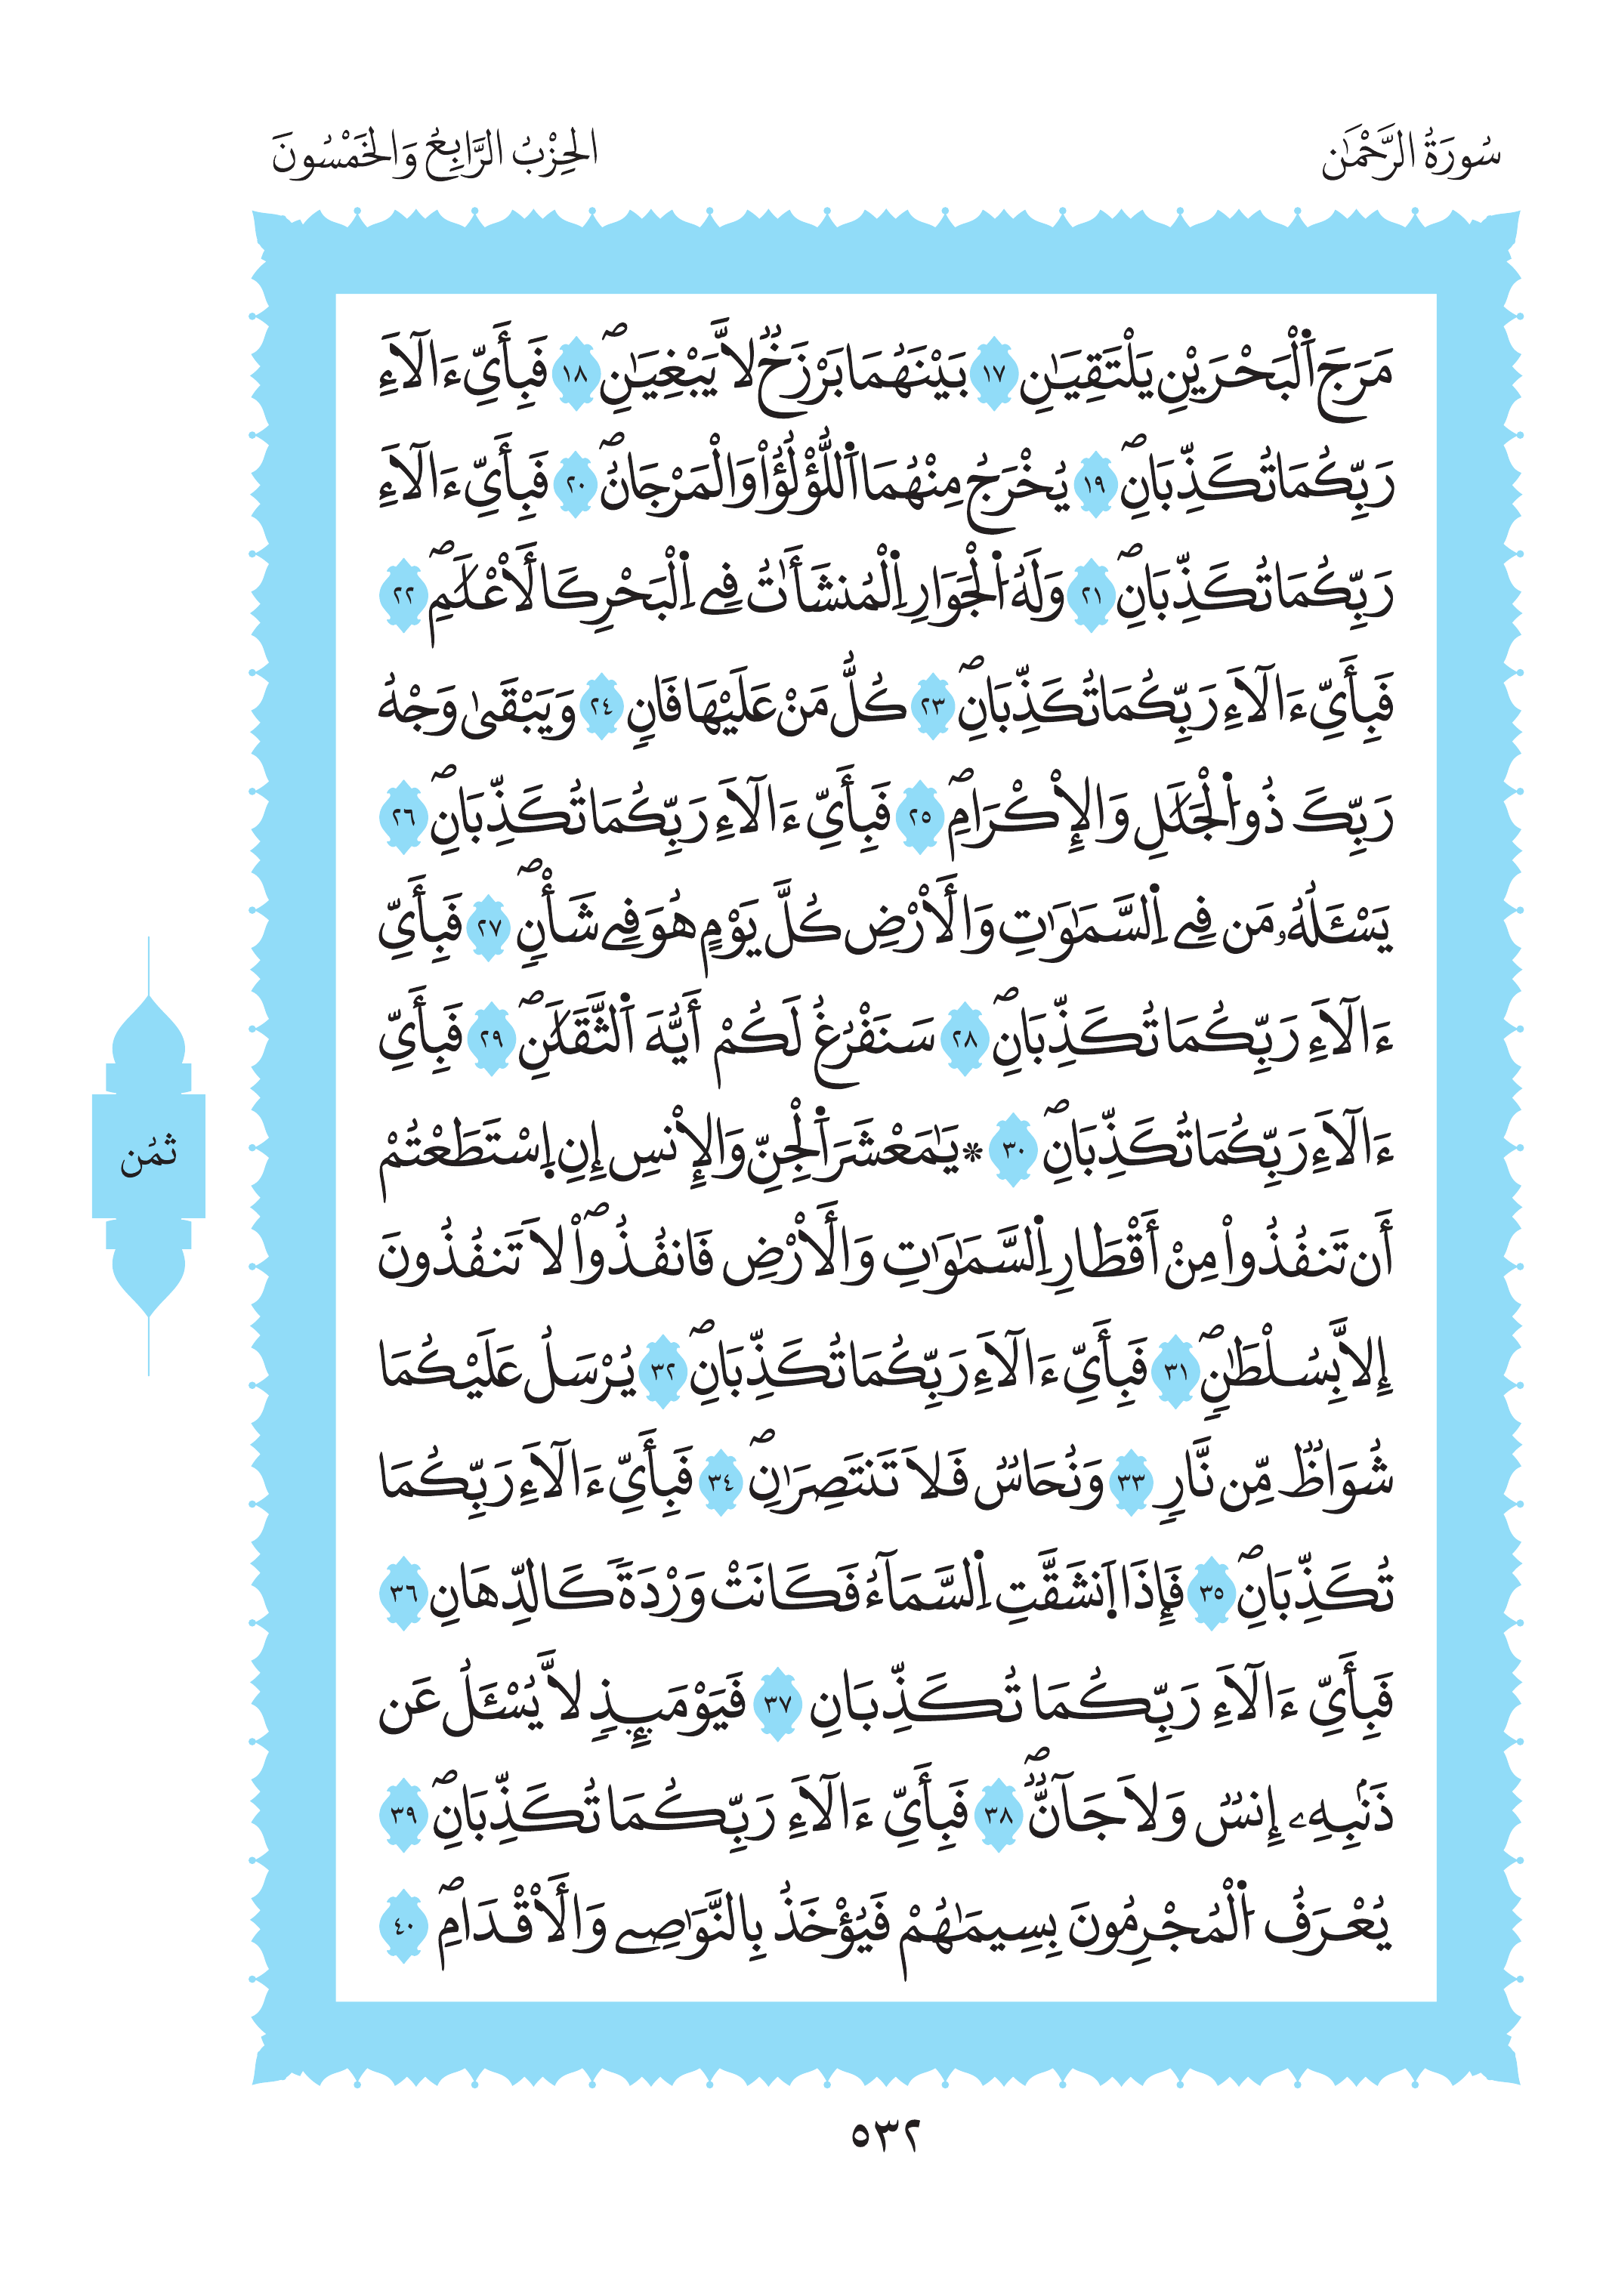 سُورَةُ الرَّحْمَٰن
الحِزْبُ الرَّابِعُ وَالخَمْسُونَ
مَرَجَ اَ۬لْبَحْرَيْنِ يَلْتَقِيَٰنِ ١٧ بَيْنَهُمَا بَرْزَخٞ لَّا يَبْغِيَٰنِۖ ١٨ فَبِأَيِّ ءَالَآءِ
رَبِّكُمَا تُكَذِّبَانِۖ ١٩ يُخْرَجُ مِنْهُمَا اَ۬للُّؤْلُؤُاْ وَالْمَرْجَانُۖ ٢٠ فَبِأَيِّ ءَالَآءِ
رَبِّكُمَا تُكَذِّبَانِۖ ٢١ وَلَهُ اُ۬لْجَوَارِ اِ۬لْمُنشَـَٔاتُ فِے اِ۬لْبَحْرِ كَالَاعْلَٰمِۖ ٢٢
فَبِأَيِّ ءَالَآءِ رَبِّكُمَا تُكَذِّبَانِۖ ٢٣ كُلُّ مَنْ عَلَيْهَا فَانٖ ٢٤ وَيَبْقَىٰ وَجْهُ
رَبِّكَ ذُو اُ۬لْجَلَٰلِ وَالْإِكْرَامِۖ ٢٥ فَبِأَيِّ ءَالَآءِ رَبِّكُمَا تُكَذِّبَانِۖ ٢٦
يَسْـَٔلُهُۥ مَن فِے اِ۬لسَّمَٰوَٰتِ وَالْأَرْضِ كُلَّ يَوْمٍ هُوَ فِے شَأْنٖۖ ٢٧ فَبِأَيِّ
ءَالَآءِ رَبِّكُمَا تُكَذِّبَانِۖ ٢٨ سَنَفْرُغُ لَكُمْ أَيُّهَ اَ۬لثَّقَلَٰنِۖ ٢٩ فَبِأَيِّ
ءَالَآءِ رَبِّكُمَا تُكَذِّبَانِۖ ٣٠ * يَٰمَعْشَرَ اَ۬لْجِنِّ وَالْإِنسِ إِنِ اِ۪سْتَطَعْتُمْ
ثمُن
أَن تَنفُذُواْ مِنْ أَقْطَارِ اِ۬لسَّمَٰوَٰتِ وَالْأَرْضِ فَانفُذُواْۖ لَا تَنفُذُونَ
إِلَّا بِسُلْطَٰنٖۖ ٣١ فَبِأَيِّ ءَالَآءِ رَبِّكُمَا تُكَذِّبَانِۖ ٣٢ يُرْسَلُ عَلَيْكُمَا
شُوَاظٞ مِّن نَّارٖ ٣٣ وَنُحَاسٞ فَلَا تَنتَصِرَٰنِۖ ٣٤ فَبِأَيِّ ءَالَآءِ رَبِّكُمَا
تُكَذِّبَانِۖ ٣٥ فَإِذَا اَ۪نشَقَّتِ اِ۬لسَّمَآءُ فَكَانَتْ وَرْدَةٗ كَالدِّهَانِ ٣٦
فَبِأَيِّ ءَالَآءِ رَبِّكُمَا تُكَذِّبَانِ ٣٧ فَيَوْمَئِذٖ لَّا يُسْـَٔلُ عَن
ذَنۢبِهِۦ إِنسٞ وَلَا جَآنّٞۖ ٣٨ فَبِأَيِّ ءَالَآءِ رَبِّكُمَا تُكَذِّبَانِۖ ٣٩
يُعْرَفُ اُ۬لْمُجْرِمُونَ بِسِيمَٰهُمْ فَيُؤْخَذُ بِالنَّوَٰصِے وَالْأَقْدَامِۖ ٤٠
٥٣٢